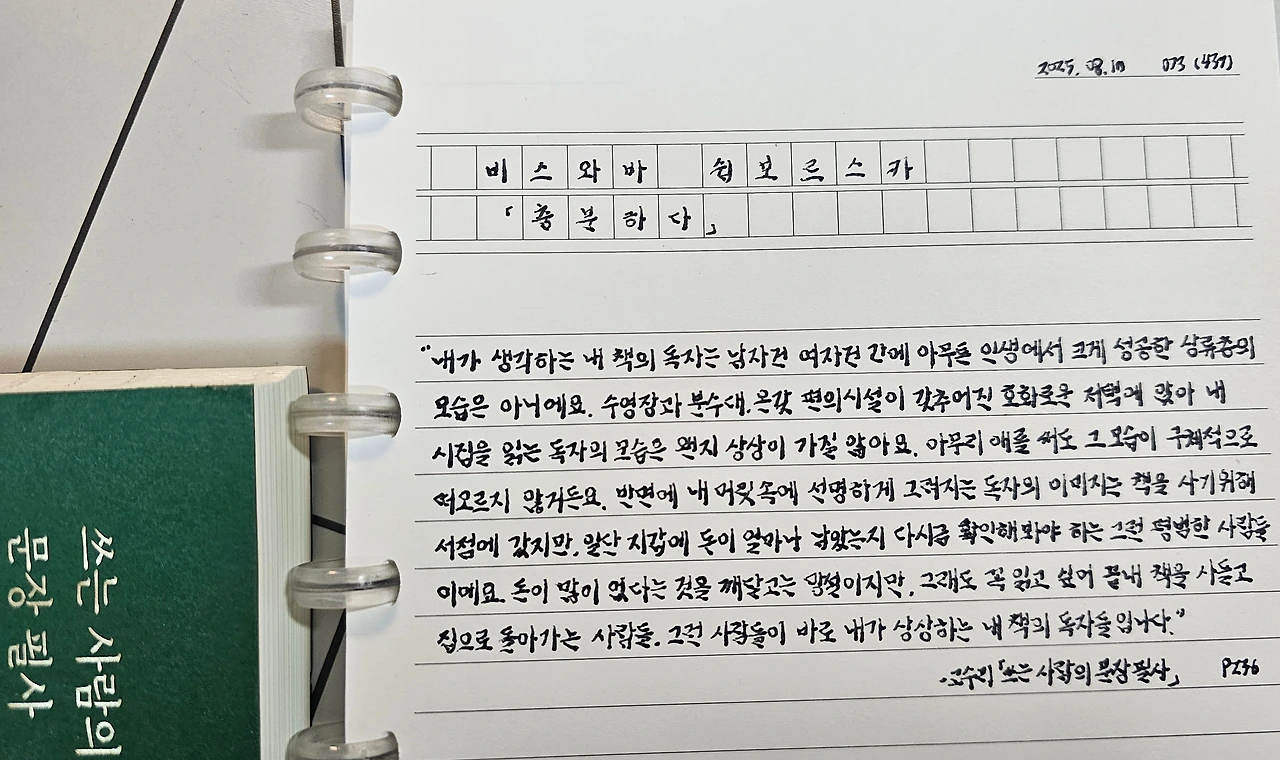 2025. 08. 10 073 (437)
비스와바 쉼보르스카
「충분하다」
"내가 생각하는 내 책의 독자는 남자건 여자건 간에 아무튼 인생에서 크게 성공한 상류층의
모습은 아니에요. 수영장과 분수대, 온갖 편의시설이 갖추어진 호화로운 저택에 앉아 내
시집을 읽는 독자의 모습은 왠지 상상이 가질 않아요. 아무리 애를 써도 그 모습이 구체적으로
떠오르지 않거든요. 반면에 내 머릿속에 선명하게 그려지는 독자의 이미지는 책을 사기위해
서점에 갔지만, 일단 지갑에 돈이 얼마나 남았는지 다시금 확인해봐야 하는 그런 평범한 사람들
이에요. 돈이 많이 없다는 것을 깨닫고는 망설이지만, 그래도 꼭 읽고 싶어 끝내 책을 사들고
집으로 돌아가는 사람들. 그런 사람들이 바로 내가 상상하는 내 책의 독자들입니다."
-고수리「쓰는 사람의 문장 필사」 P236
쓰는 사람의
문장 필사